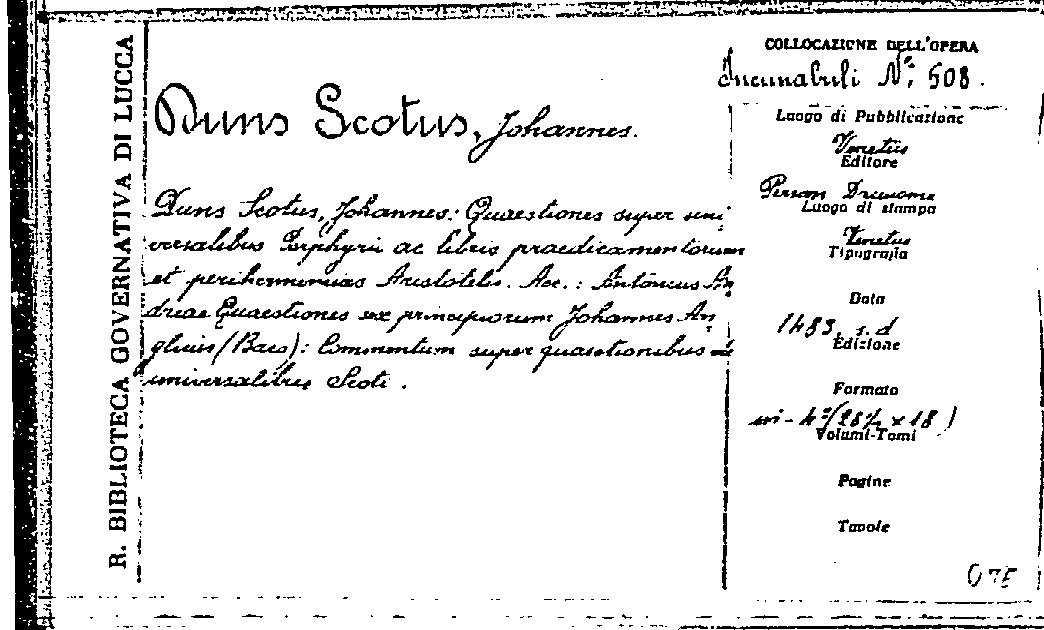 R. BIBLIOTECA GOVERNATIVA DI LUCCA
Duns Scotus, Johannes.
Duns Scotus, Johannes: Quaestiones super uni
versalibus Porphyrii ac libris praedicamentorum
et perihermenias Aristotelis. Acc.: Antonius An
dreae Quaestiones sex principiorum Johannes An
glicus (Baes): Commentum super quaestionibus
universalibus Scoti.
COLLOCAZIONE DELL'OPERA
Incunabuli N° 508.
Luogo di Pubblicazione
Venetiis
Editore
Luogo di stampa
Venetiis
Tipografia
Data
1483, s.d
Edizione
Formato
in-4°
x 18)
Volumi-Tomi
Pagine
Tavole